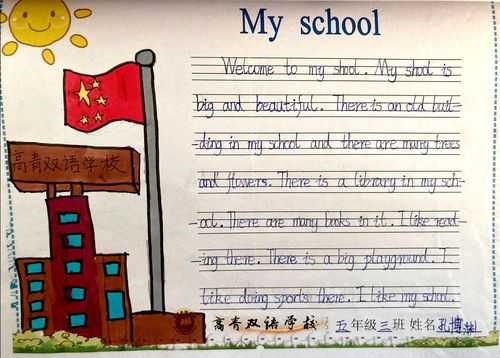 My school
Welcome to my shool. My shool is
big and beautiful. There is an old buil-
-ding in my school and there are many trees
and flowers. There is a library in my sch-
-ool. There are many books in it. I like read-
-ing there. There is a big playground. I
like doing sports there. I like my school.
高青双语学校
高青双语学校 五年级三班 姓名孔博